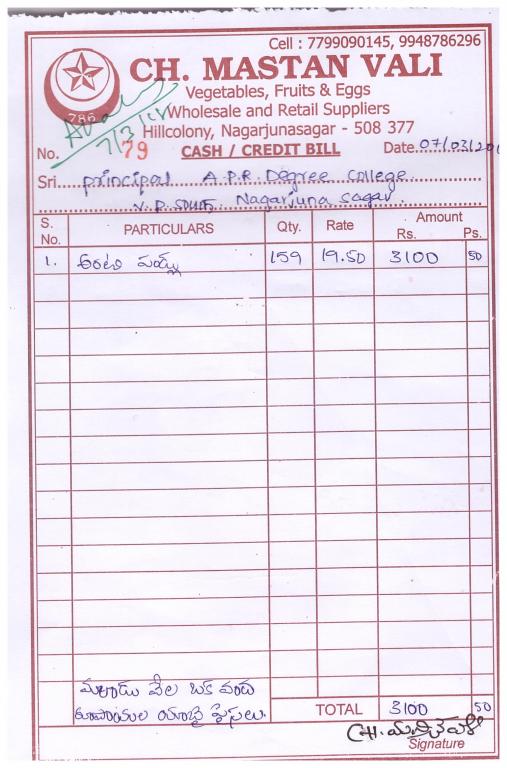 Cell : 7799090145, 9948786296
786
CH. MASTAN VALI
Vegetables, Fruits & Eggs
Wholesale and Retail Suppliers
Hillcolony, Nagarjunasagar - 508 377
No. 79 CASH / CREDIT BILL Date 07/03/201
7/3/
Sri principal A.P.R. Degree College
V.P. South Nagarjuna sagar
S. No. PARTICULARS Qty. Rate Amount
Rs. Ps.
1. అరటి పండ్లు 159 19.50 3100 50
మూడు వేల ఒక వంద
రూపాయల యాభై పైసలు.
TOTAL 3100 50
CH. మస్తాన్ వలీ
Signature